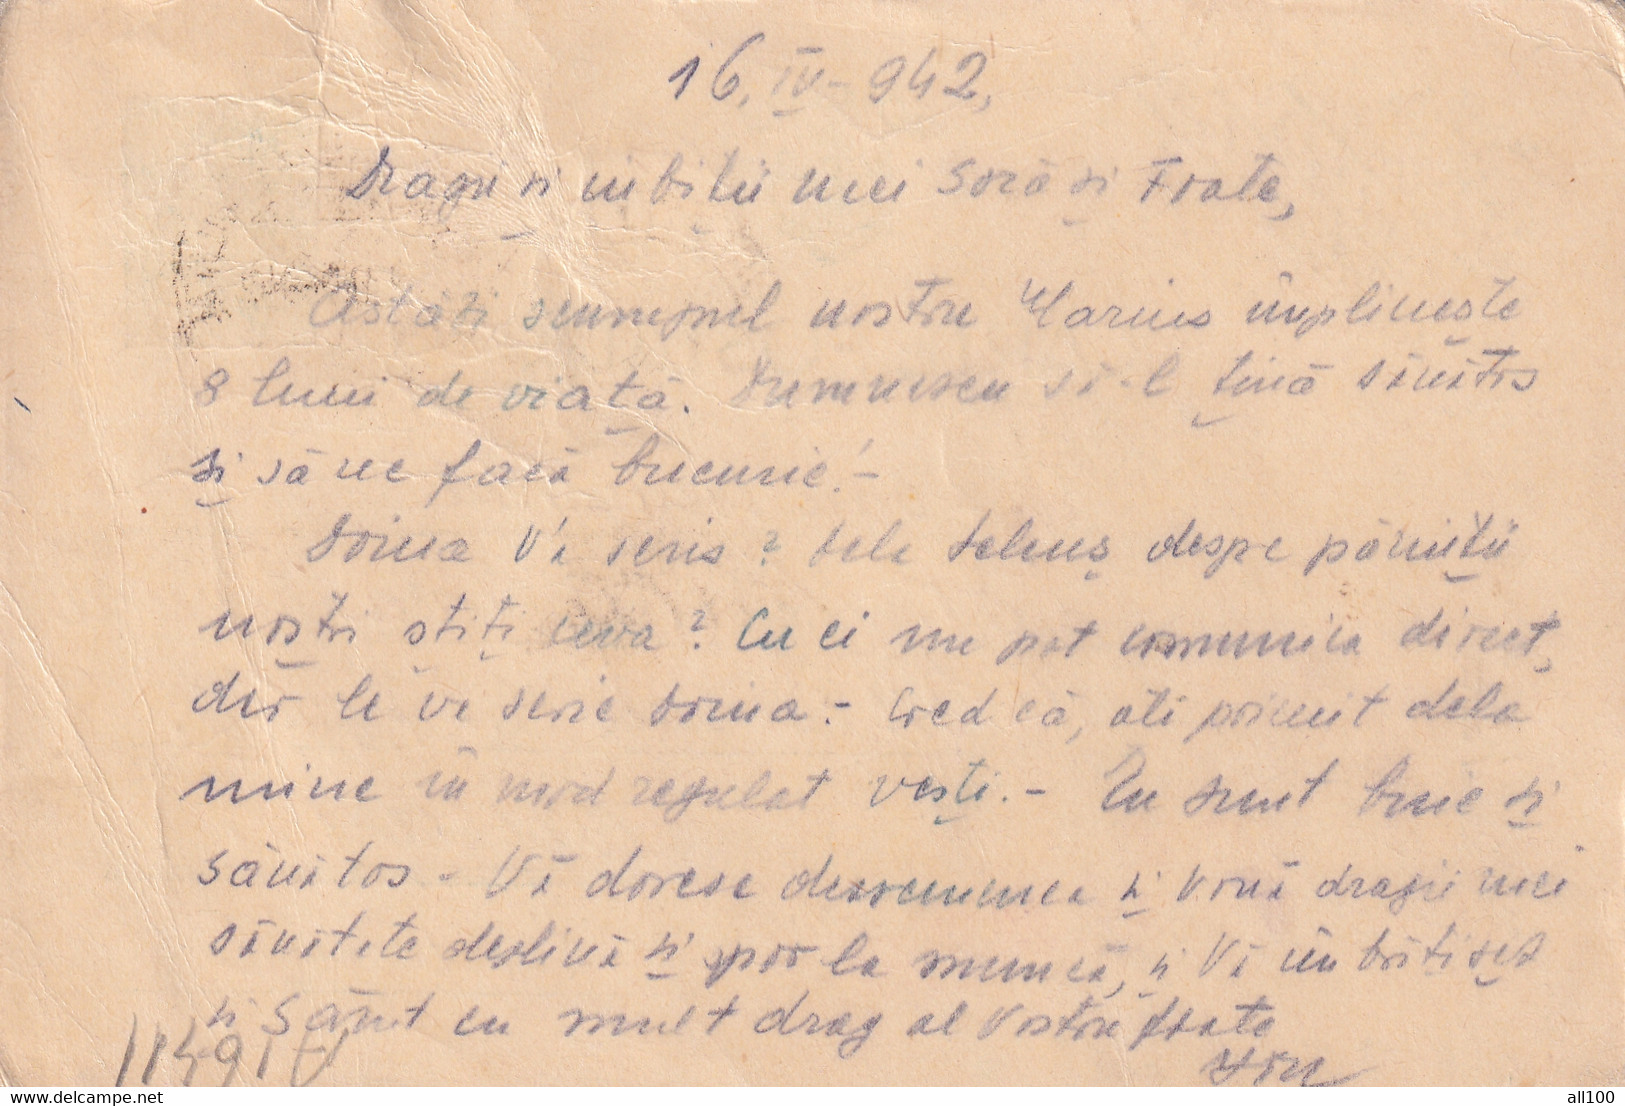 16. IV - 942,
Dragii și iubiții mei Soră și Frate,
Astăzi scumpul nostru Marius împlinește
8 luni de viață. Dumnezeu să-l țină sănătos
și să ne facă bucurie! -
Doina Vă scris? dela despre părinții
noștri știți ceva? Cu ei nu pot comunica direct,
dar le va scrie Doina. - Cred că, ați primit dela
mine în mod regulat vești. - Eu sunt bine și
sănătos - Vă doresc deasemenea și Vouă dragii mei
sănătate deplină și spor la muncă, și Vă îmbrățișez
și Sărut cu mult drag al Vostru frate
Ion
all100